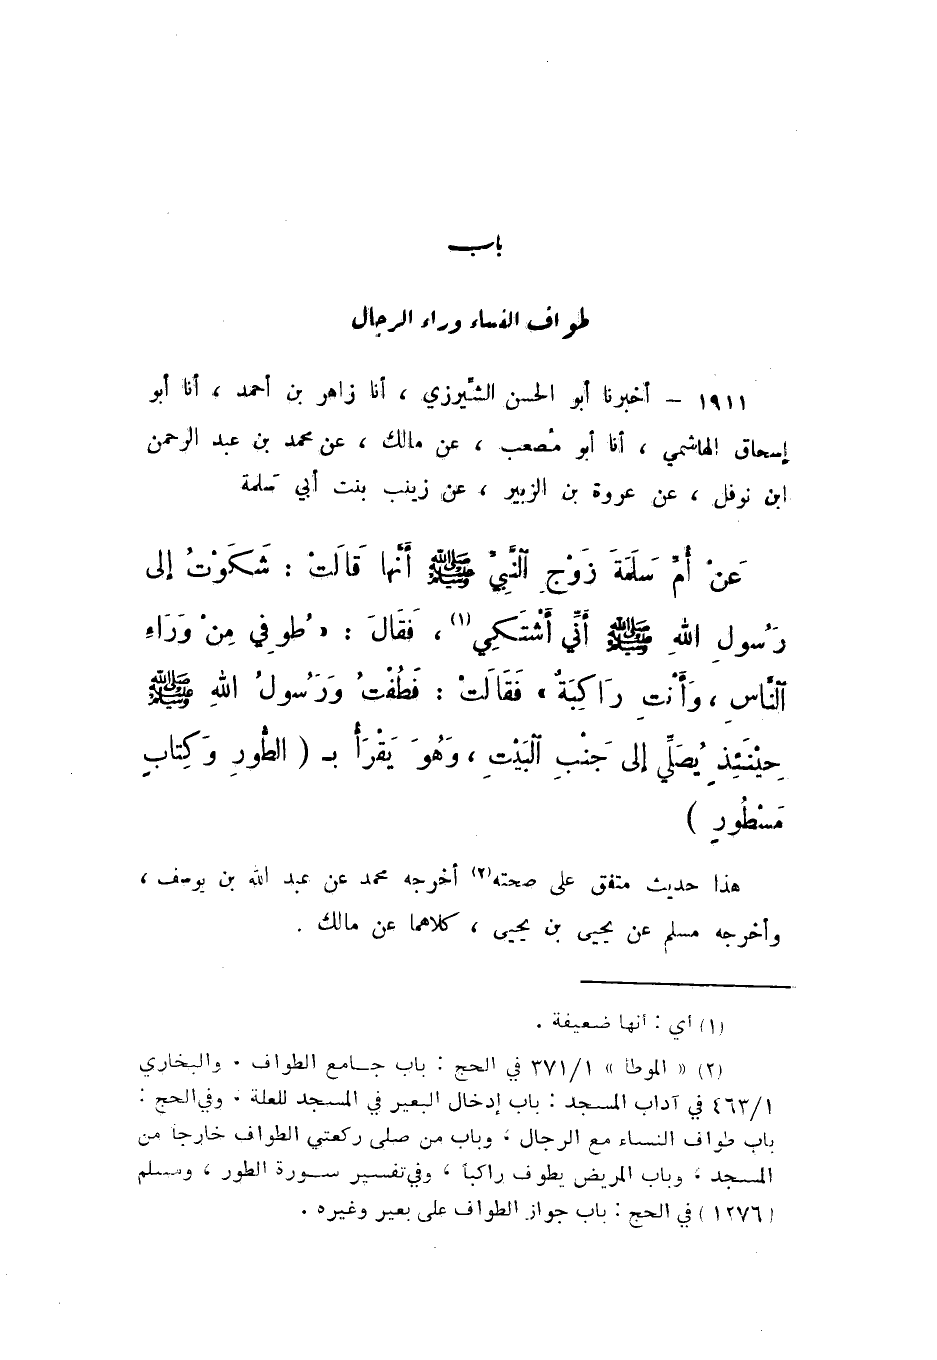 باب
طواف النساء وراء الرجال
١٩١١ – أخبرنا أبو الحسن الشِّيرزي ، أنا زاهر بن أحمد ، أنا أبو
إسحاق الهاشمي ، أنا أبو مُصعب ، عن مالك ، عن محمد بن عبد الرحمن
ابن نوفل ، عن عروة بن الزبير ، عن زينب بنت أبي سَلمة
عَنْ أُمِّ سَلَمَةَ زَوْجِ ٱلنَّبِيِّ ﷺ أَنَّهَا قَالَتْ : شَكَوْتُ إِلى
رَسُولِ اللهِ ﷺ أَنِّي أَشْتَكِي(١) ، فَقَالَ : « طُوفِي مِنْ وَرَاءِ
ٱلنَّاسِ ، وَأَنْتِ رَاكِبَةٌ » فَقَالَتْ : فَطُفْتُ وَرَسُولُ اللهِ ﷺ
حِيْنَئِذٍ يُصَلِّي إِلى جَنْبِ ٱلبَيْتِ ، وَهُوَ يَقْرَأُ بـ ( الطُّورِ وَكِتابٍ
مَسْطُورٍ )
هذا حديث متفق على صحته(٢) أخرجه محمد عن عبد الله بن يوسف ،
وأخرجه مسلم عن يحيى بن يحيى ، كلاهما عن مالك .
(١) أي : أنها ضعيفة .
(٢) « الموطأ » ٣٧١/١ في الحج : باب جـامع الطواف ، والبخاري
٤٦٣/١ في آداب المسجد : باب إدخال البعير في المسجد للعلة ، وفي الحج :
باب طواف النساء مع الرجال ، وباب من صلى ركعتي الطواف خارجاً من
المسجد ، وباب المريض يطوف راكباً ، وفي تفسير سـورة الطور ، ومسلم
(١٢٧٦) في الحج : باب جواز الطواف على بعير وغيره .